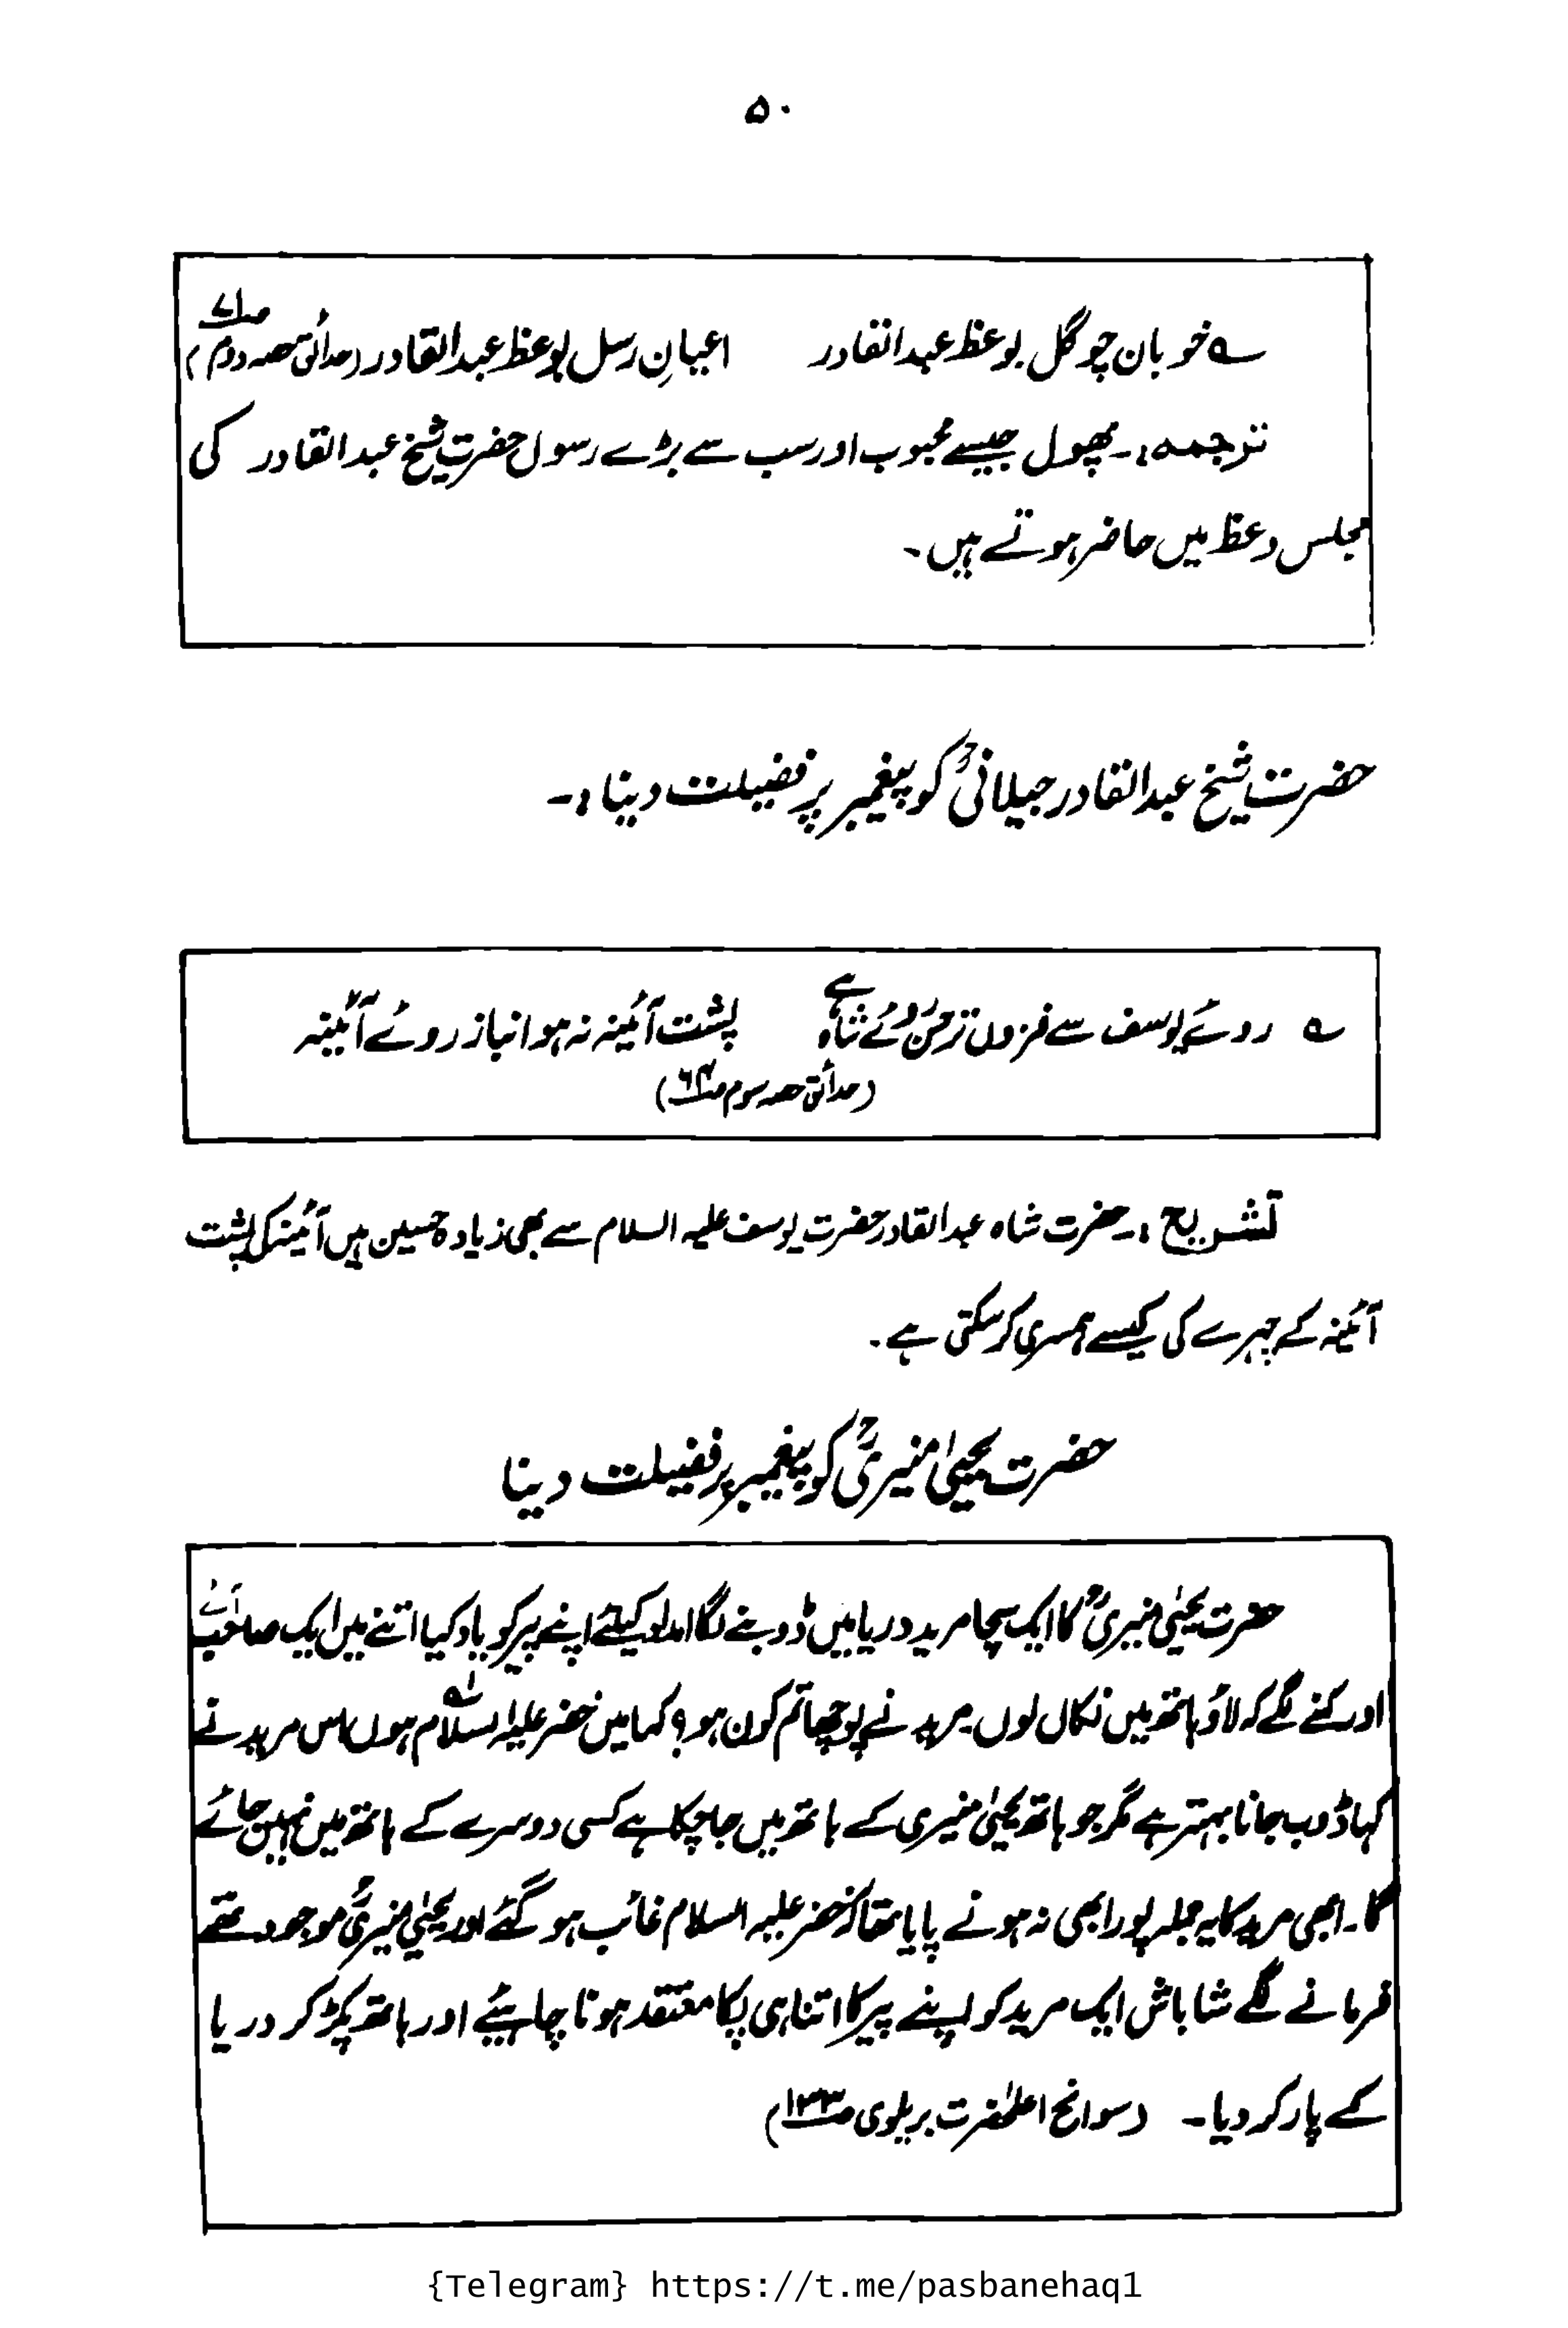 ۵۰
؎ خوبان چو گل بوعظ عبدالقادر اعیانِ رسل بوعظ عبدالقادر (حدائق حصہ دوم ص۷۱)
ترجمہ:۔ پھول جیسے محبوب اور سب سے بڑے رسول حضرت شیخ عبدالقادر کی
مجلس وعظ میں حاضر ہوتے ہیں۔
حضرت شیخ عبدالقادر جیلانیؒ کو پیغمبر پر فضیلت دینا:۔
؎ روئے یوسف سے فزوں تر حسن روئے شاہ ہے پشت آئینہ نہ ہو انباز روئے آئینہ
(حدائق حصہ سوم ص۶۴)
تشریح:۔ حضرت شاہ عبدالقادر حضرت یوسف علیہ السلام سے بھی زیادہ حسین ہیں آئینہ کی پشت
آئینہ کے چہرے کی کیسے ہمسری کر سکتی ہے۔
حضرت یحییٰ منیریؒ کو پیغمبر پر فضیلت دینا
حضرت یحییٰ منیریؒ کا ایک سچا مرید دریا میں ڈوبنے لگا امداد کیلئے اپنے پیر کو یاد کیا اتنے میں ایک صاحب آئے
اور کہنے لگے کہ لاؤ ہاتھ میں نکال لوں۔ مرید نے پوچھا تم کون ہو؟ کہا میں خضر علیہ السلام ہوں اس مرید نے
کہا ڈوب جانا بہتر ہے مگر جو ہاتھ یحییٰ منیری کے ہاتھ میں جا چکا ہے کسی دوسرے کے ہاتھ میں نہیں جائے
گا۔ ابھی مرید کا یہ جملہ پورا بھی نہ ہونے پایا تھا کہ خضر علیہ السلام غائب ہو گئے اور یحییٰ منیریؒ موجود تھے
فرمانے لگے شاباش ایک مرید کو اپنے پیر کا اتنا ہی پکا معتقد ہونا چاہیئے اور ہاتھ پکڑ کر دریا
کے پار کر دیا۔ (سوانح اعلحضرت بریلوی ص۱۳۳)
{Telegram} https://t.me/pasbanehaq1